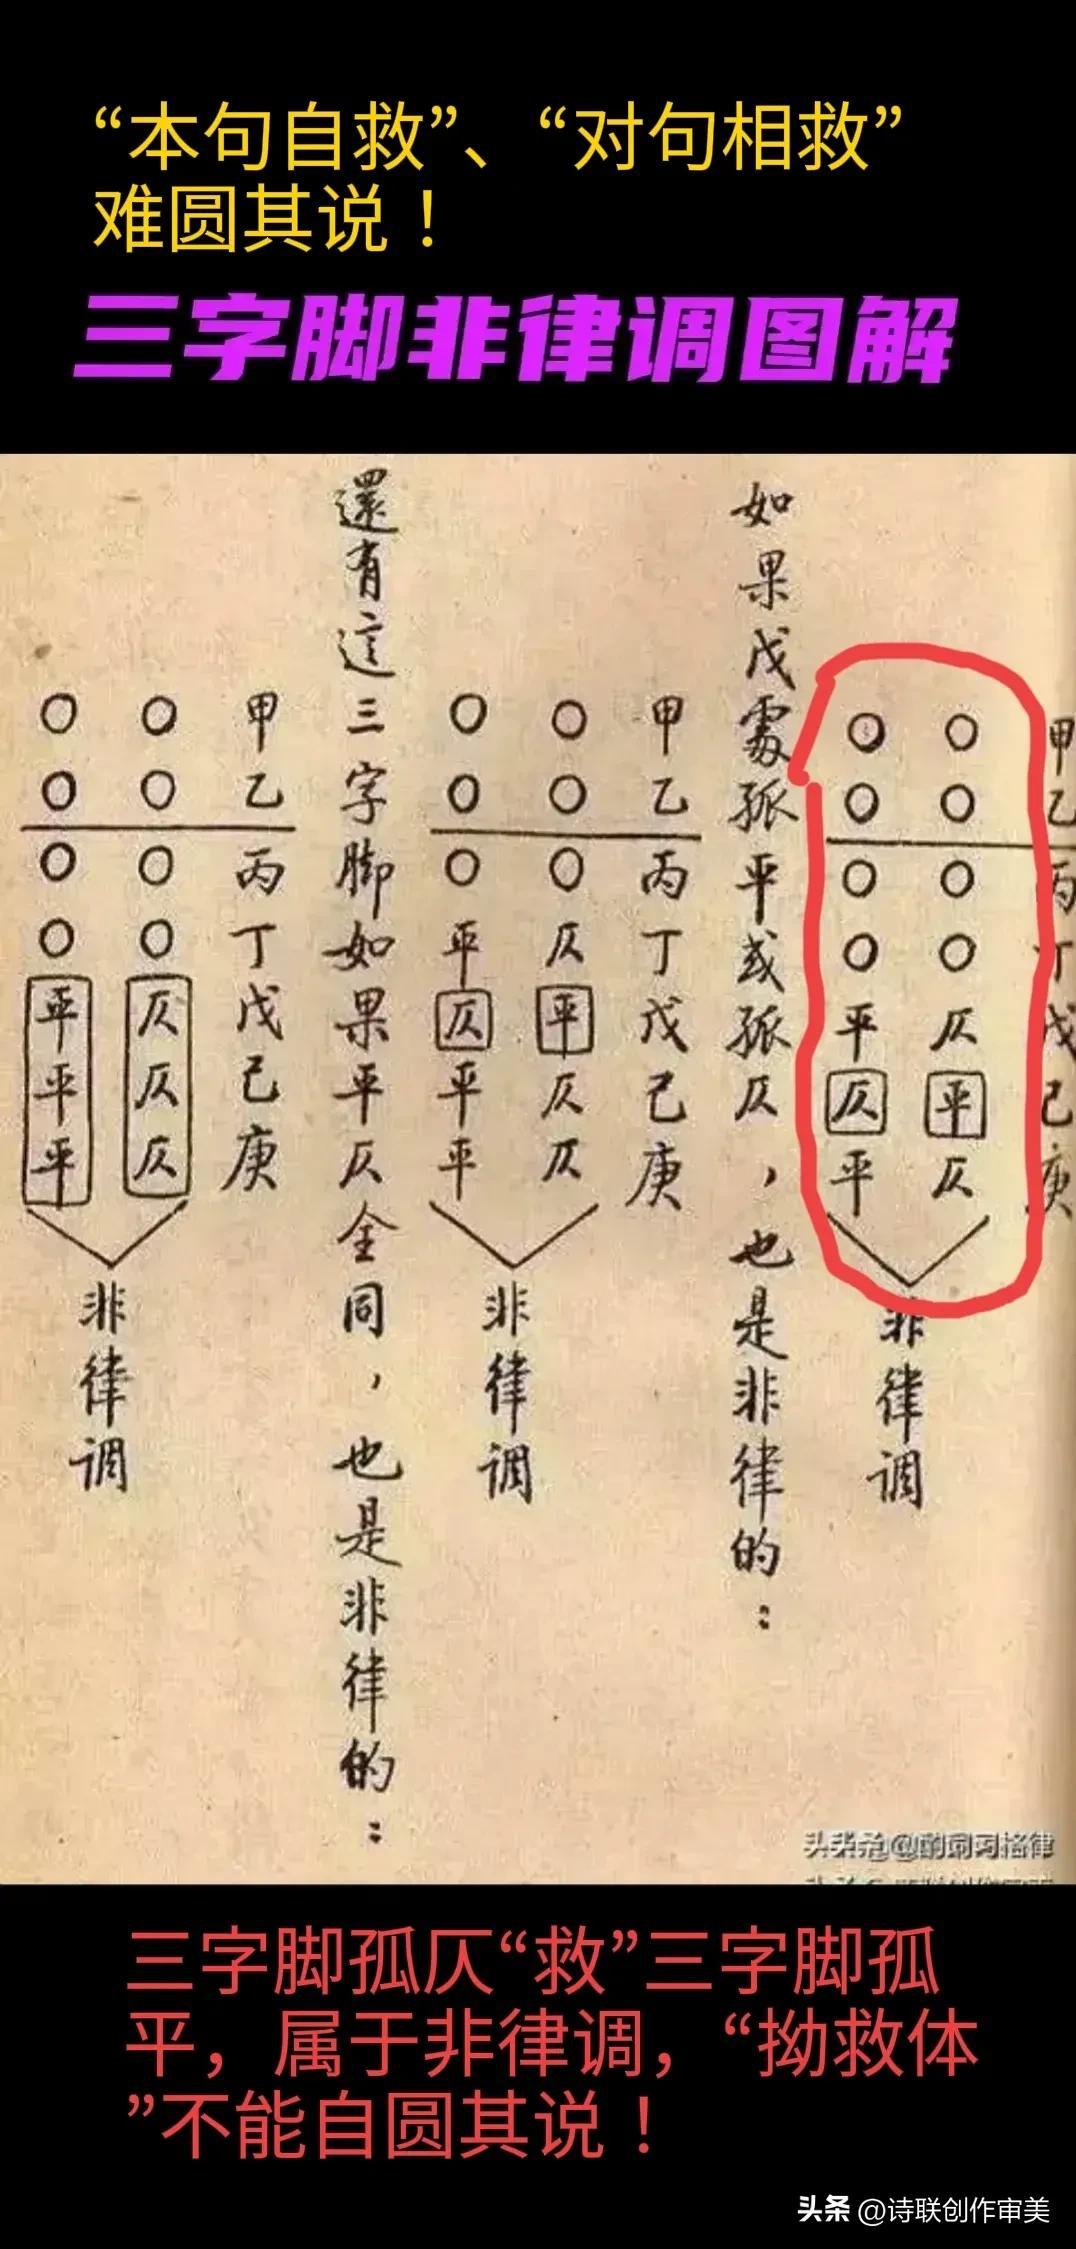 “本句自救”、“对句相救”
难圆其说！
三字脚非律调图解
甲乙丙丁戊己庚
○○○○仄平仄
○○○○平仄平
非律调
如果戊處孤平或孤仄，也是非律的：
甲乙丙丁戊己庚
○○○仄平仄仄
○○○平仄平平
非律调
還有這三字脚如果平仄全同，也是非律的：
甲乙丙丁戊己庚
○○○○仄仄仄
○○○○平平平
非律调
三字脚孤仄“救”三字脚孤
平，属于非律调，“拗救体
”不能自圆其说！
头条 @诗联创作审美